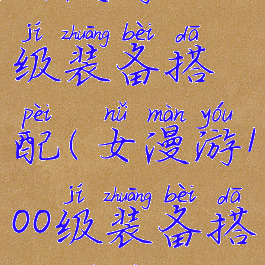 jí zhuāng bèi dā
级装备搭
pèi nǚ màn yóu
配(女漫游1
jí zhuāng bèi dā
00级装备搭